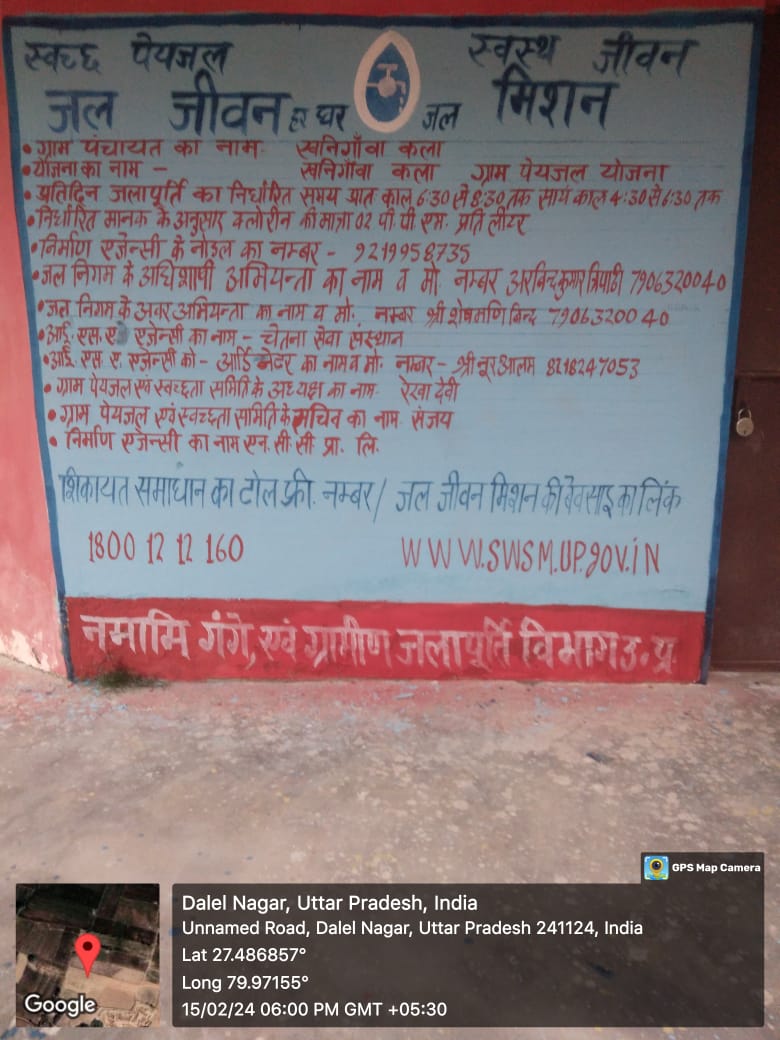 स्वच्छ पेयजल स्वस्थ जीवन
जल जीवन हर घर जल मिशन
• ग्राम पंचायत का नाम- खनिगाँवा कला
• योजना का नाम - खनिगाँवा कला ग्राम पेयजल योजना
• प्रतिदिन जलापूर्ति का निर्धारित समय प्रातः काल 6:30 से 8:30 तक सायं काल 4:30 से 6:30 तक
• निर्धारित मानक के अनुसार क्लोरीन की मात्रा 02 पी.पी.एम. प्रति लीटर
• निर्माण एजेन्सी के नोडल का नम्बर - 9219958735
• जल निगम के अधिशाषी अभियन्ता का नाम व मो. नम्बर अरविन्द कुमार त्रिपाठी 7906320040
• जल निगम के अवर अभियन्ता का नाम व मो. नम्बर श्री शेषमणि बिन्द 7906320040
• आई. एस. ए. एजेन्सी का नाम - चेतना सेवा संस्थान
• आई. एस. ए. एजेन्सी को - आर्डिनेटर का नाम व मो. नम्बर - श्री नूर आलम 8218247053
• ग्राम पेयजल एवं स्वच्छता समिति के अध्यक्ष का नाम- रेखा देवी
• ग्राम पेयजल एवं स्वच्छता समिति के सचिव का नाम- संजय
• निर्माण एजेन्सी का नाम एन. सी. सी प्रा. लि.
शिकायत समाधान का टोल फ्री. नम्बर / जल जीवन मिशन की वेवसाइ का लिंक
1800 12 12 160 WWW.SWSM.UP.gov.iN
नमामि गंगे, एवं ग्रामीण जलापूर्ति विभाग उ.प्र.
GPS Map Camera
Dalel Nagar, Uttar Pradesh, India
Unnamed Road, Dalel Nagar, Uttar Pradesh 241124, India
Lat 27.486857°
Long 79.97155°
15/02/24 06:00 PM GMT +05:30
Google